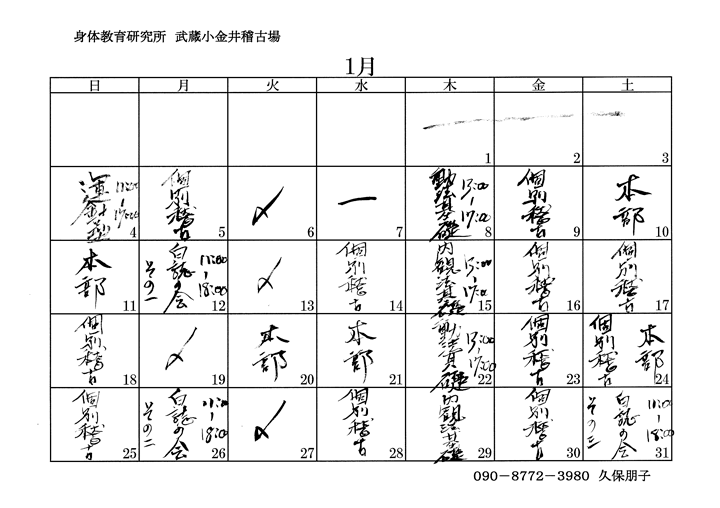 身体教育研究所 武蔵小金井稽古場
1月
日 月 火 水 木 金 土
1 2 3
4 11:00-17:00
個別稽古 5
〆 6
一 7
動法基礎 13:00-17:00 8
個別稽古 9
本部 10
本部 11
白誌の会 その一 11:00-18:00 12
〆 13
個別稽古 14
内観法基礎 13:00-17:00 15
個別稽古 16
個別稽古 17
個別稽古 18
〆 19
本部 20
本部 21
動法基礎 13:00-17:00 22
個別稽古 23
個別稽古 本部 24
個別稽古 25
白誌の会 その二 11:00-18:00 26
〆 27
個別稽古 28
内観法基礎 29
個別稽古 30
白誌の会 その三 11:00-18:00 31
090-8772-3980 久保朋子